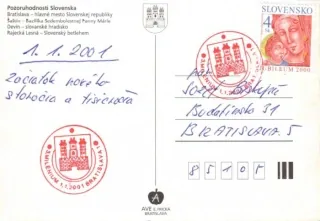 Pozoruhodnosti Slovenska
Bratislava – hlavné mesto Slovenskej republiky
Šaštín – Bazilika Sedembolestnej Panny Márie
Devín – slovanské hradisko
Rajecká Lesná – Slovenský betlehem
1. 1. 2001
Začiatok nového
storočia a tisícročia
SLOVENSKO
4
JUBILEUM 2000
SMILÉNIUM 1.1.2001 BRATISLAVA 1
SMILÉNIUM 1.1.2001 BRATISLAVA 1
Budatínska 31
BRATISLAVA 5
85105
A
BRATISLAVA